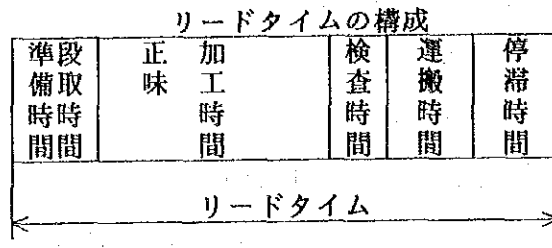 リードタイムの構成
準備時間
段取時間
正味
加工時間
検査時間
運搬時間
停滞時間
リードタイム